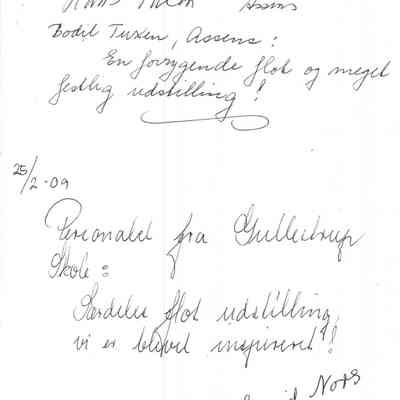 Assens
Bodil Tuxen, Assens:
En forrygende flot og meget
festlig udstilling!
25/2-09
Personalet fra Gullestrup
Skole:
Særdeles flot udstilling,
vi er blevet inspireret!